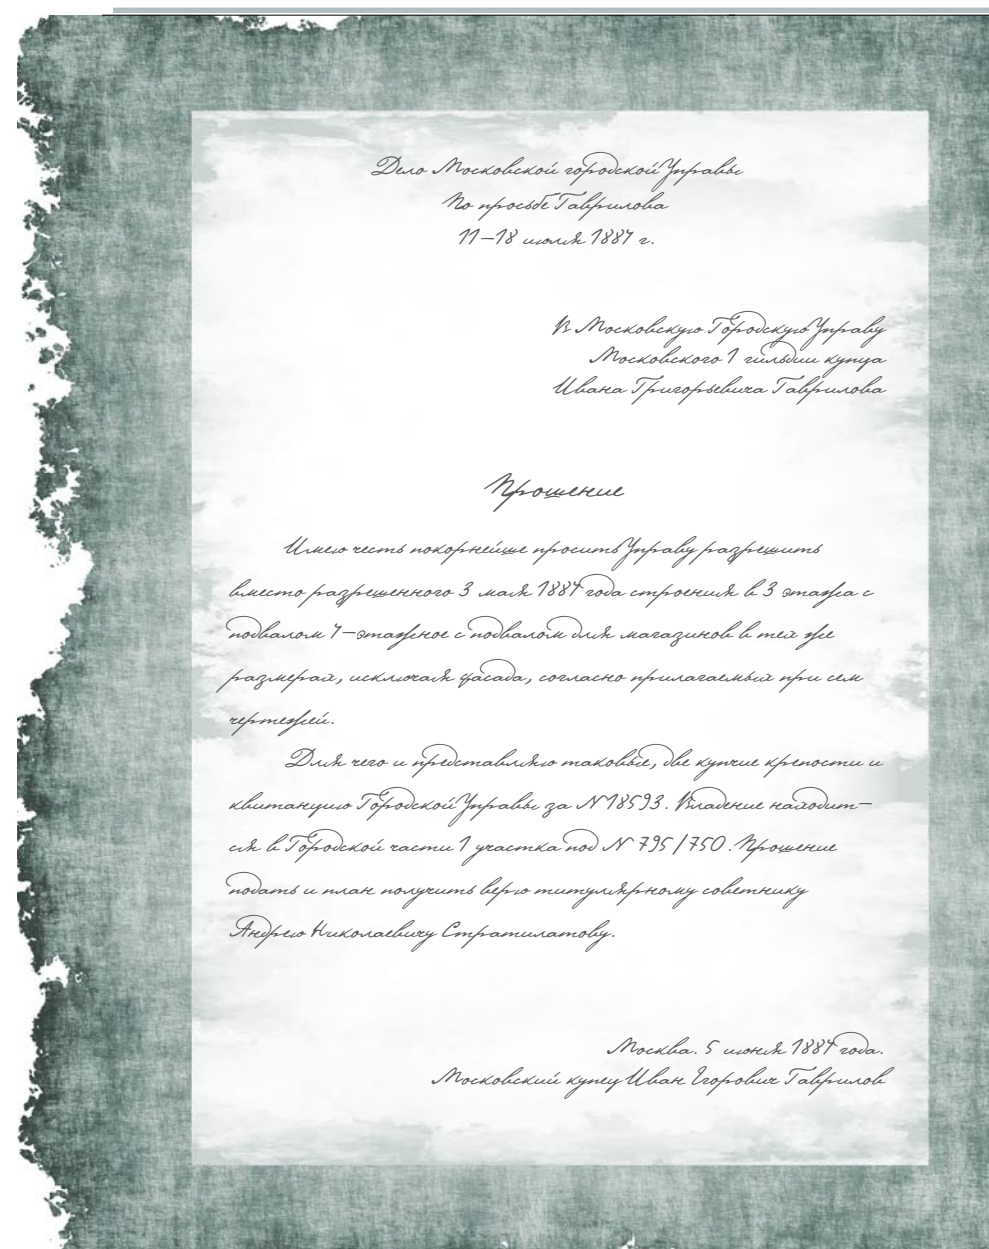 Дело Московской городской Управы
По просьбе Гаврилова
11–18 июля 1884 г.
В Московскую Городскую Управу
Московского 1 гильдии купца
Ивана Григорьевича Гаврилова
Прошение
Имею честь покорнейше просить Управу разрешить
вместо разрешенного 3 мая 1884 года строения в 3 этажа с
подвалом 4–этажное с подвалом для магазинов в тех же
размерах, исключая фасада, согласно прилагаемых при сем
чертежей.
Для чего и представляю таковые, две купчие крепости и
квитанцию Городской Управы за N18593. Владение находит–
ся в Городской части 1 участка под N 795/750. Прошение
подать и план получить верю титулярному советнику
Андрею Николаевичу Стратилатову.
Москва. 5 июня 1884 года.
Московский купец Иван Егорович Гаврилов